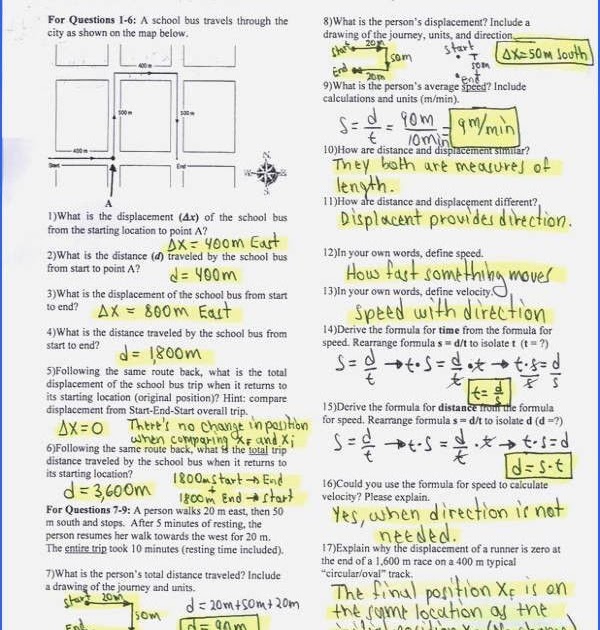 For Questions 1-6: A school bus travels through the
city as shown on the map below.
400 m
500 m
500 m
400 m
Start
End
A
1)What is the displacement (Δx) of the school bus
from the starting location to point A?
ΔX = 400m East
2)What is the distance (d) traveled by the school bus
from start to point A?
d = 400m
3)What is the displacement of the school bus from start
to end?
ΔX = 800m East
4)What is the distance traveled by the school bus from
start to end?
d = 1,800m
5)Following the same route back, what is the total
displacement of the school bus trip when it returns to
its starting location (original position)? Hint: compare
displacement from Start-End-Start overall trip.
ΔX=0 There's no change in position
when comparing XF and Xi
6)Following the same route back, what is the total trip
distance traveled by the school bus when it returns to
its starting location?
1800m Start → End
+
1800m End → Start
d = 3,600m
For Questions 7-9: A person walks 20 m east, then 50
m south and stops. After 5 minutes of resting, the
person resumes her walk towards the west for 20 m.
The entire trip took 10 minutes (resting time included).
7)What is the person's total distance traveled? Include
a drawing of the journey and units.
Start 20m
50m
End
d = 20m+50m+20m
d = 90m
8)What is the person's displacement? Include a
drawing of the journey, units, and direction.
Start 20m
50m
End 20m
Start
50m
End
ΔX=50m South
9)What is the person's average speed? Include
calculations and units (m/min).
S = d/t = 90m/10min = 9m/min
10)How are distance and displacement similar?
They both are measures of
length.
11)How are distance and displacement different?
Displacent provides direction.
12)In your own words, define speed.
How fast something moves
13)In your own words, define velocity.
Speed with direction
14)Derive the formula for time from the formula for
speed. Rearrange formula s = d/t to isolate t (t = ?)
S = d/t → t·S = d/t ·t → t·S/S = d/S
t = d/S
15)Derive the formula for distance from the formula
for speed. Rearrange formula s = d/t to isolate d (d =?)
S = d/t → t·S = d/t ·t → t·S=d
d = S·t
16)Could you use the formula for speed to calculate
velocity? Please explain.
Yes, when direction is not
needed.
17)Explain why the displacement of a runner is zero at
the end of a 1,600 m race on a 400 m typical
"circular/oval" track.
The final position XF is on
the same location as the